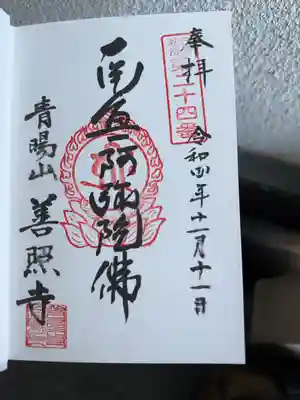 奉拝
令和四年十一月十一日
二十四番
南無阿弥陀佛
青陽山 善照寺